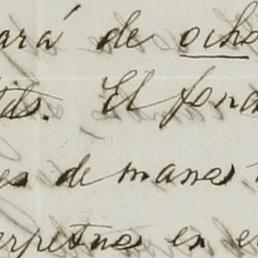 ará de ocho
tas. El fond
es de mano
erpetuo en e